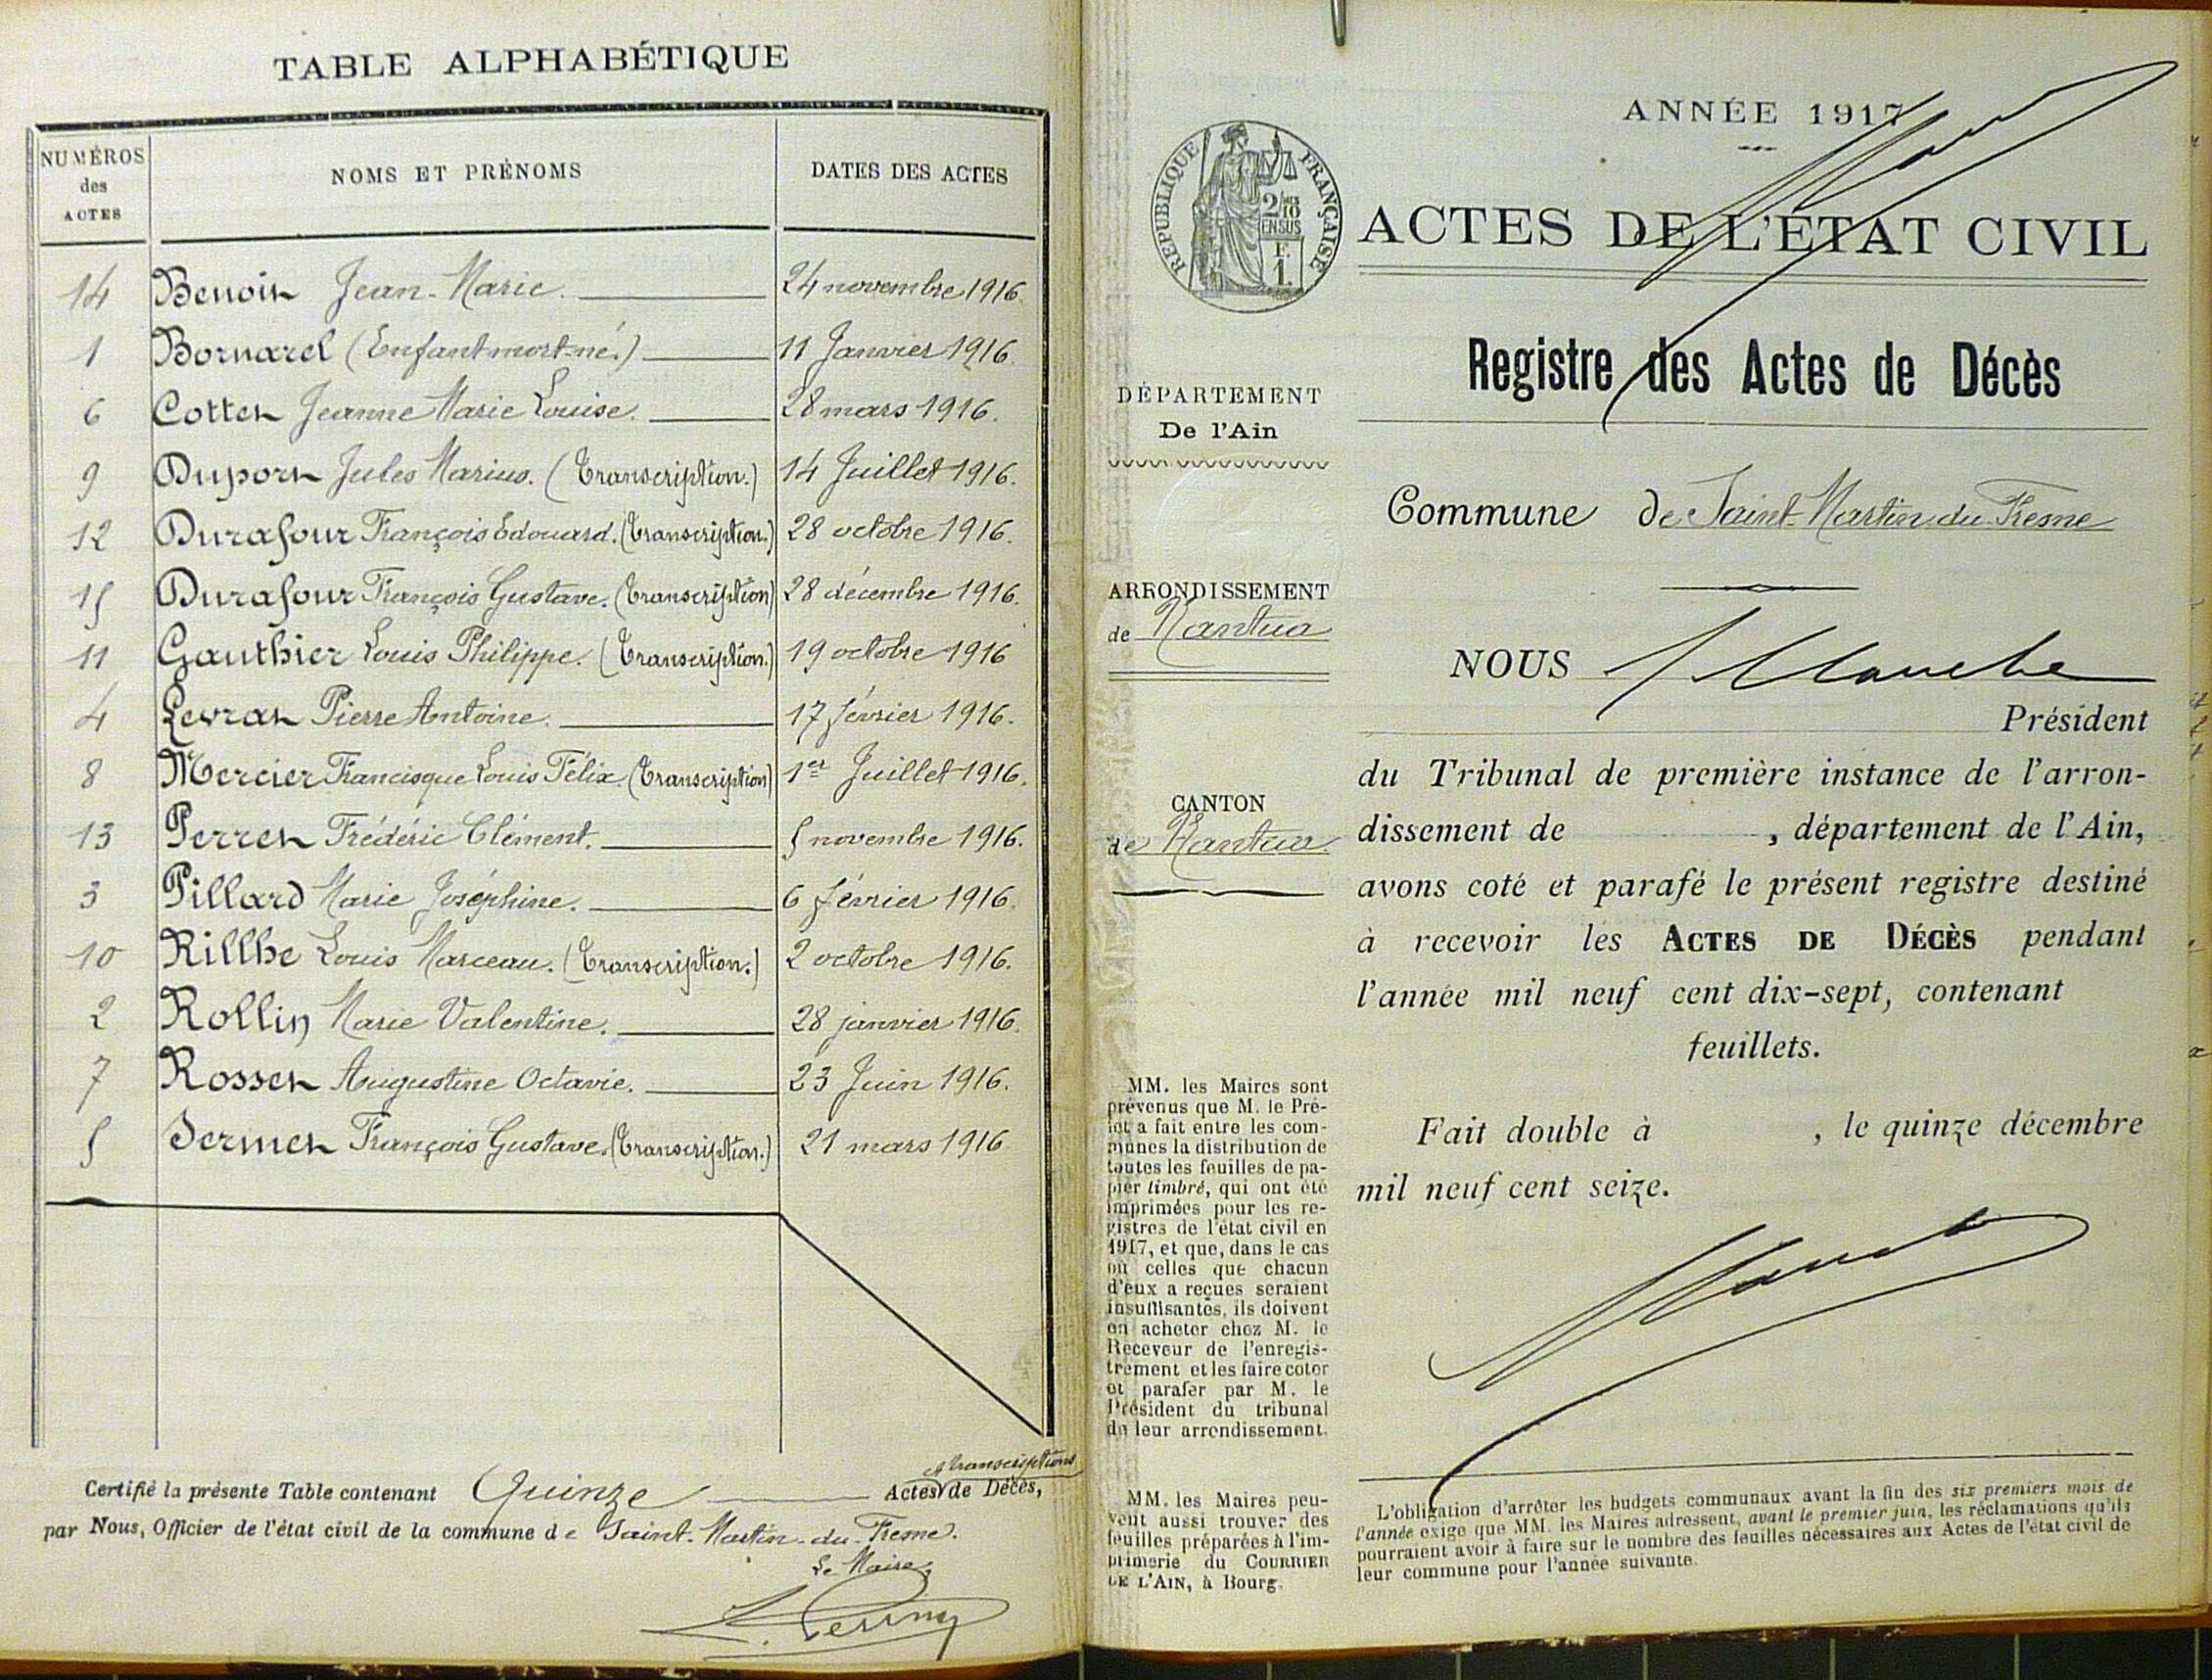 TABLE ALPHABÉTIQUE
NUMÉROS
des
ACTES
NOMS ET PRÉNOMS
DATES DES ACTES
14 Benoit Jean-Marie. 24 novembre 1916.
1 Bornarel (Enfant mort-né.) 11 Janvier 1916.
6 Cottet Jeanne Marie Louise. 28 mars 1916.
9 Duport Jules Marius. (Transcription.) 14 Juillet 1916.
12 Durafour François Edouard. (Transcription.) 28 octobre 1916.
15 Durafour François Gustave. (Transcription) 28 décembre 1916.
11 Gauthier Louis Philippe. (Transcription.) 19 octobre 1916
4 Levrat Pierre Antoine. 17 février 1916.
8 Mercier Francisque Louis Félix. (Transcription) 1er Juillet 1916.
13 Perret Frédéric Clément. 5 novembre 1916.
3 Pillard Marie Joséphine. 6 février 1916.
10 Rillhe Louis Marceau. (Transcription.) 2 octobre 1916.
2 Rollin Marie Valentine. 28 janvier 1916.
7 Rosset Augustine Octavie. 23 Juin 1916.
5 Sermet François Gustave. (Transcription.) 21 mars 1916
et transcriptions
Certifié la présente Table contenant Quinze Actes de Décès,
par Nous, Officier de l'état civil de la commune de Saint-Martin-du-Fresne.
Le Maire,
ANNÉE 1917
ACTES DE L'ÉTAT CIVIL
RÉPUBLIQUE FRANÇAISE
2/10
EN SUS
F.
1.
Registre des Actes de Décès
DÉPARTEMENT
De l'Ain
Commune de Saint-Martin du Fresne
ARRONDISSEMENT
de Nantua
NOUS
Président
du Tribunal de première instance de l'arron-
CANTON
de Nantua
dissement de , département de l'Ain,
avons coté et parafé le présent registre destiné
à recevoir les ACTES DE DÉCÈS pendant
l'année mil neuf cent dix-sept, contenant
feuillets.
Fait double à , le quinze décembre
mil neuf cent seize.
MM. les Maires sont
prévenus que M. le Pré-
fet a fait entre les com-
munes la distribution de
toutes les feuilles de pa-
pier timbré, qui ont été
imprimées pour les re-
gistres de l'état civil en
1917, et que, dans le cas
où celles que chacun
d'eux a reçues seraient
insuffisantes, ils doivent
en acheter chez M. le
Receveur de l'enregis-
trement et les faire coter
et parafer par M. le
Président du tribunal
de leur arrondissement.
MM. les Maires peu-
vent aussi trouver des
feuilles préparées à l'im-
primerie du COURRIER
DE L'AIN, à Bourg.
L'obligation d'arrêter les budgets communaux avant la fin des six premiers mois de
l'année exige que MM. les Maires adressent, avant le premier juin, les réclamations qu'ils
pourraient avoir à faire sur le nombre des feuilles nécessaires aux Actes de l'état civil de
leur commune pour l'année suivante.